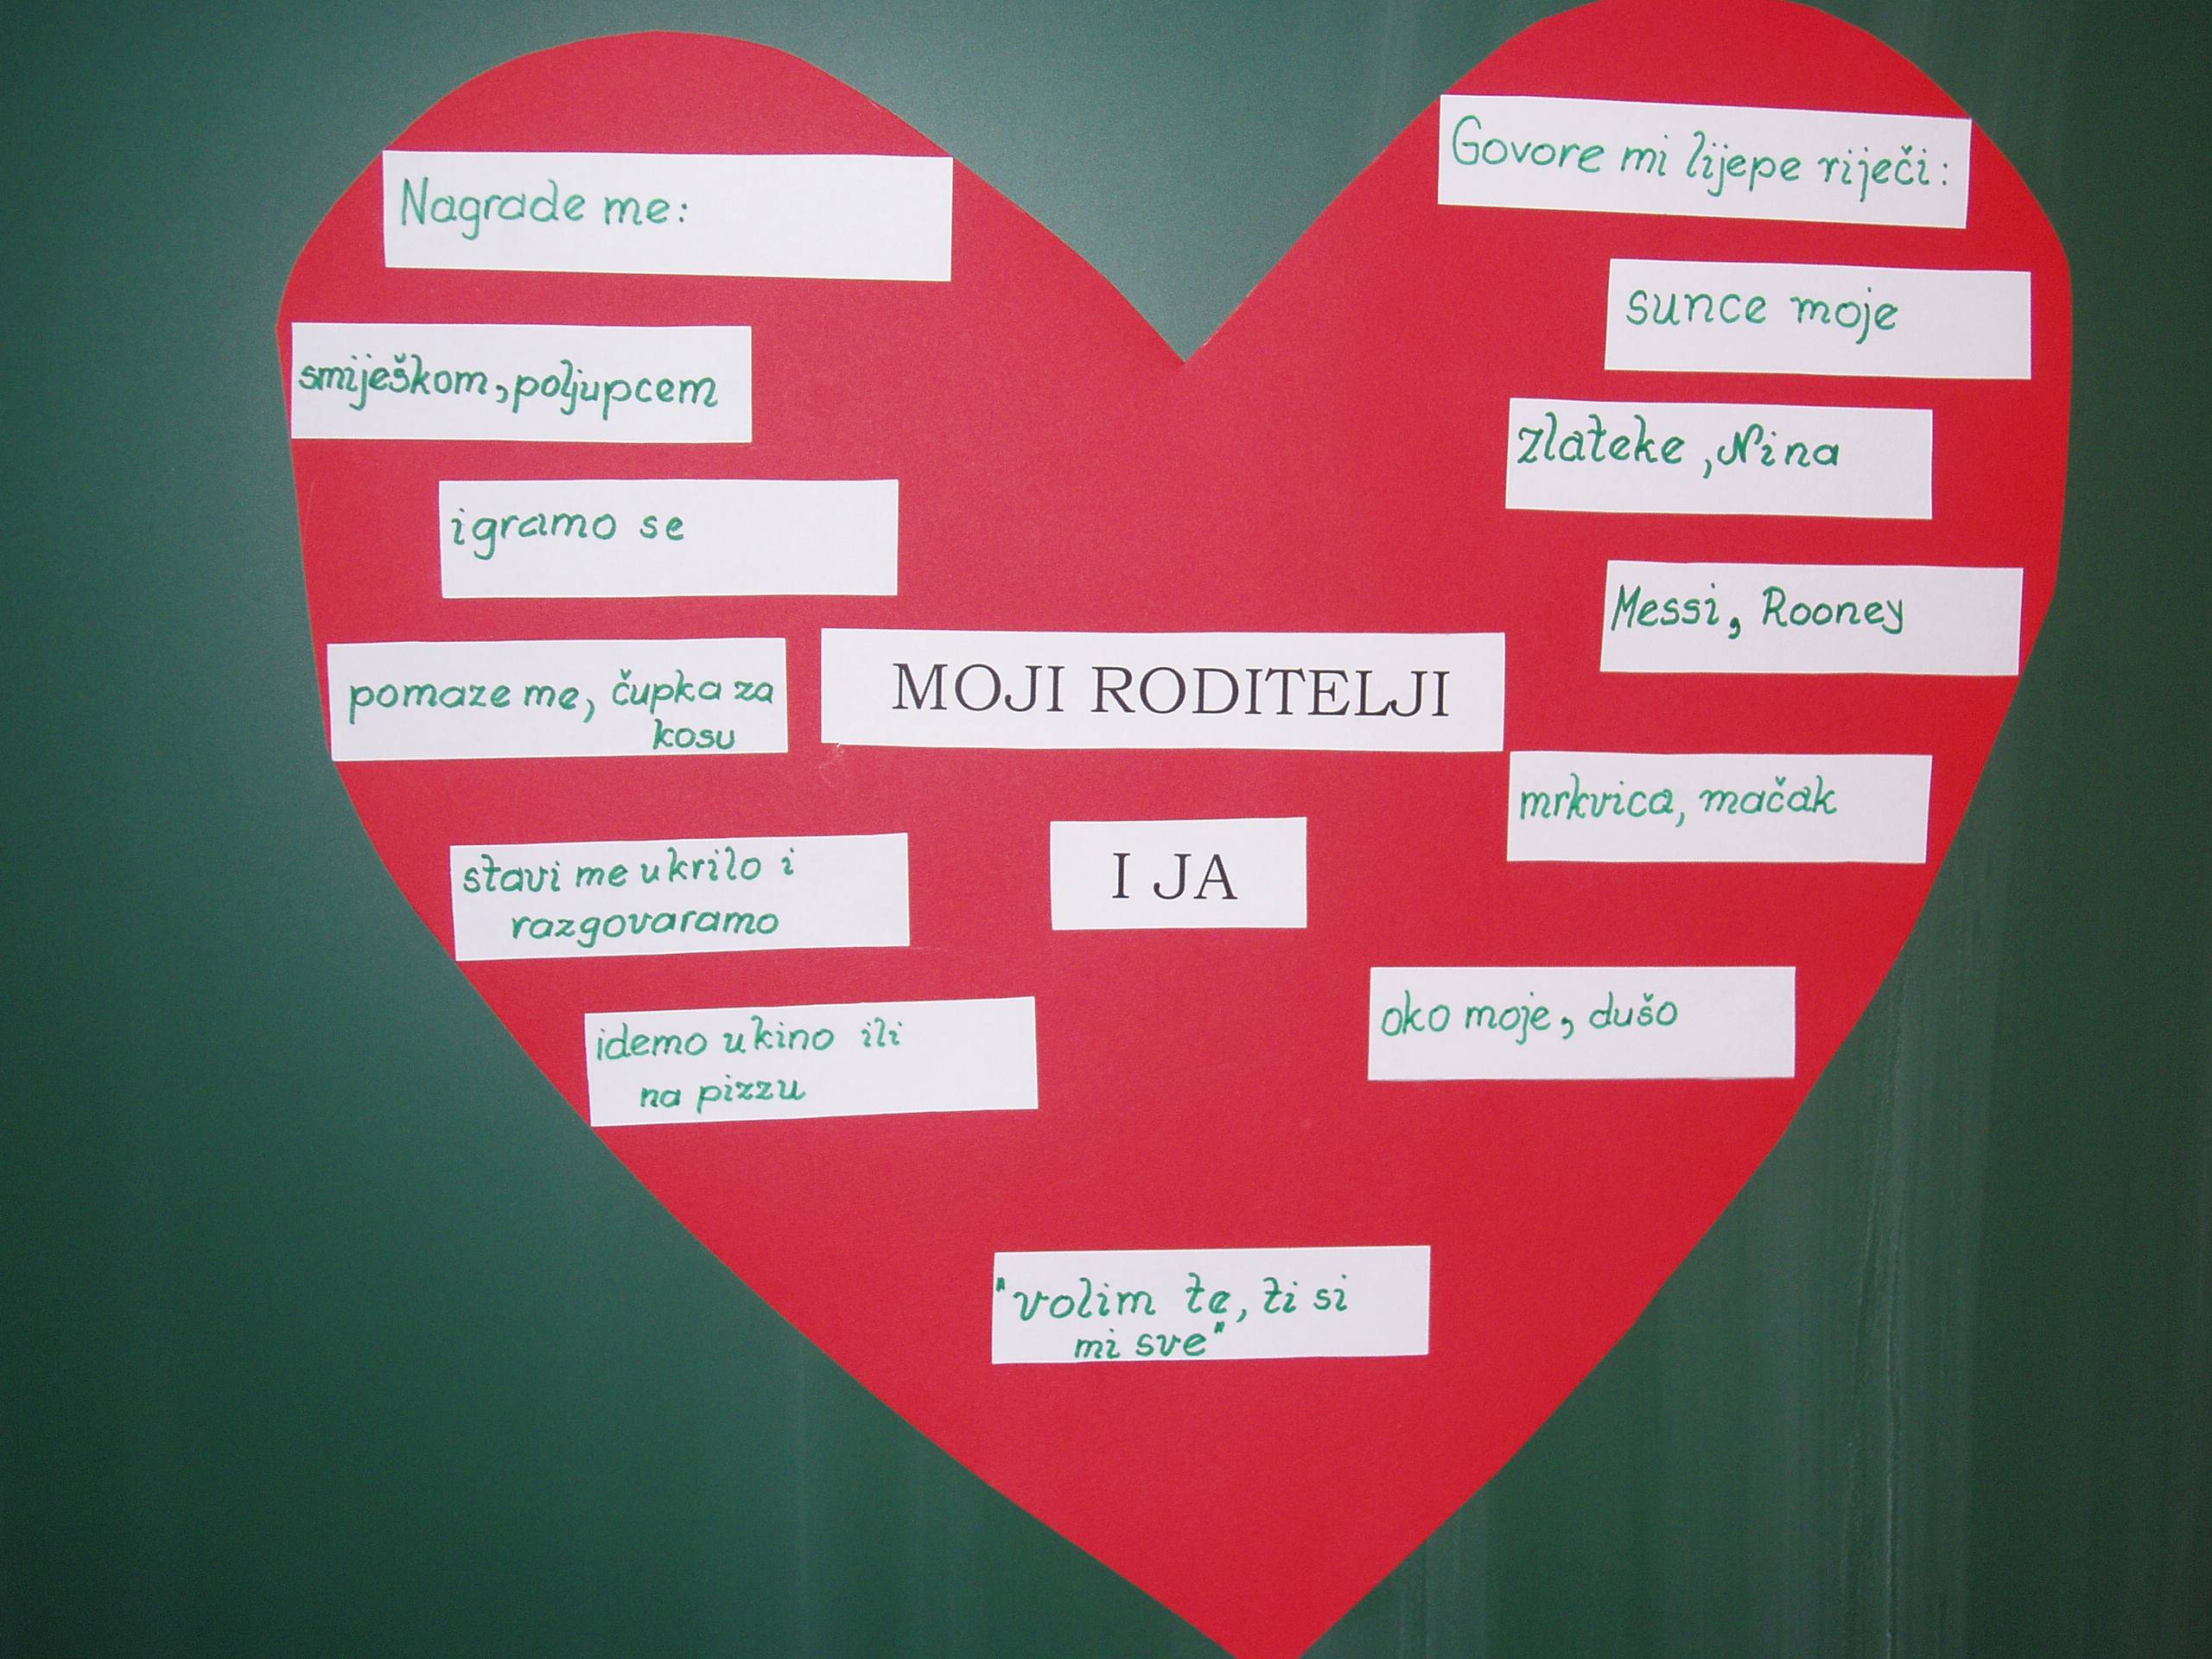 Nagrade me:
smiješkom, poljupcem
igramo se
pomaze me, čupka za
kosu
stavi me u krilo i
razgovaramo
idemo u kino ili
na pizzu
MOJI RODITELJI
I JA
Govore mi lijepe riječi:
sunce moje
zlateke, Nina
Messi, Rooney
mrkvica, mačak
oko moje, dušo
"volim te, ti si
mi sve"